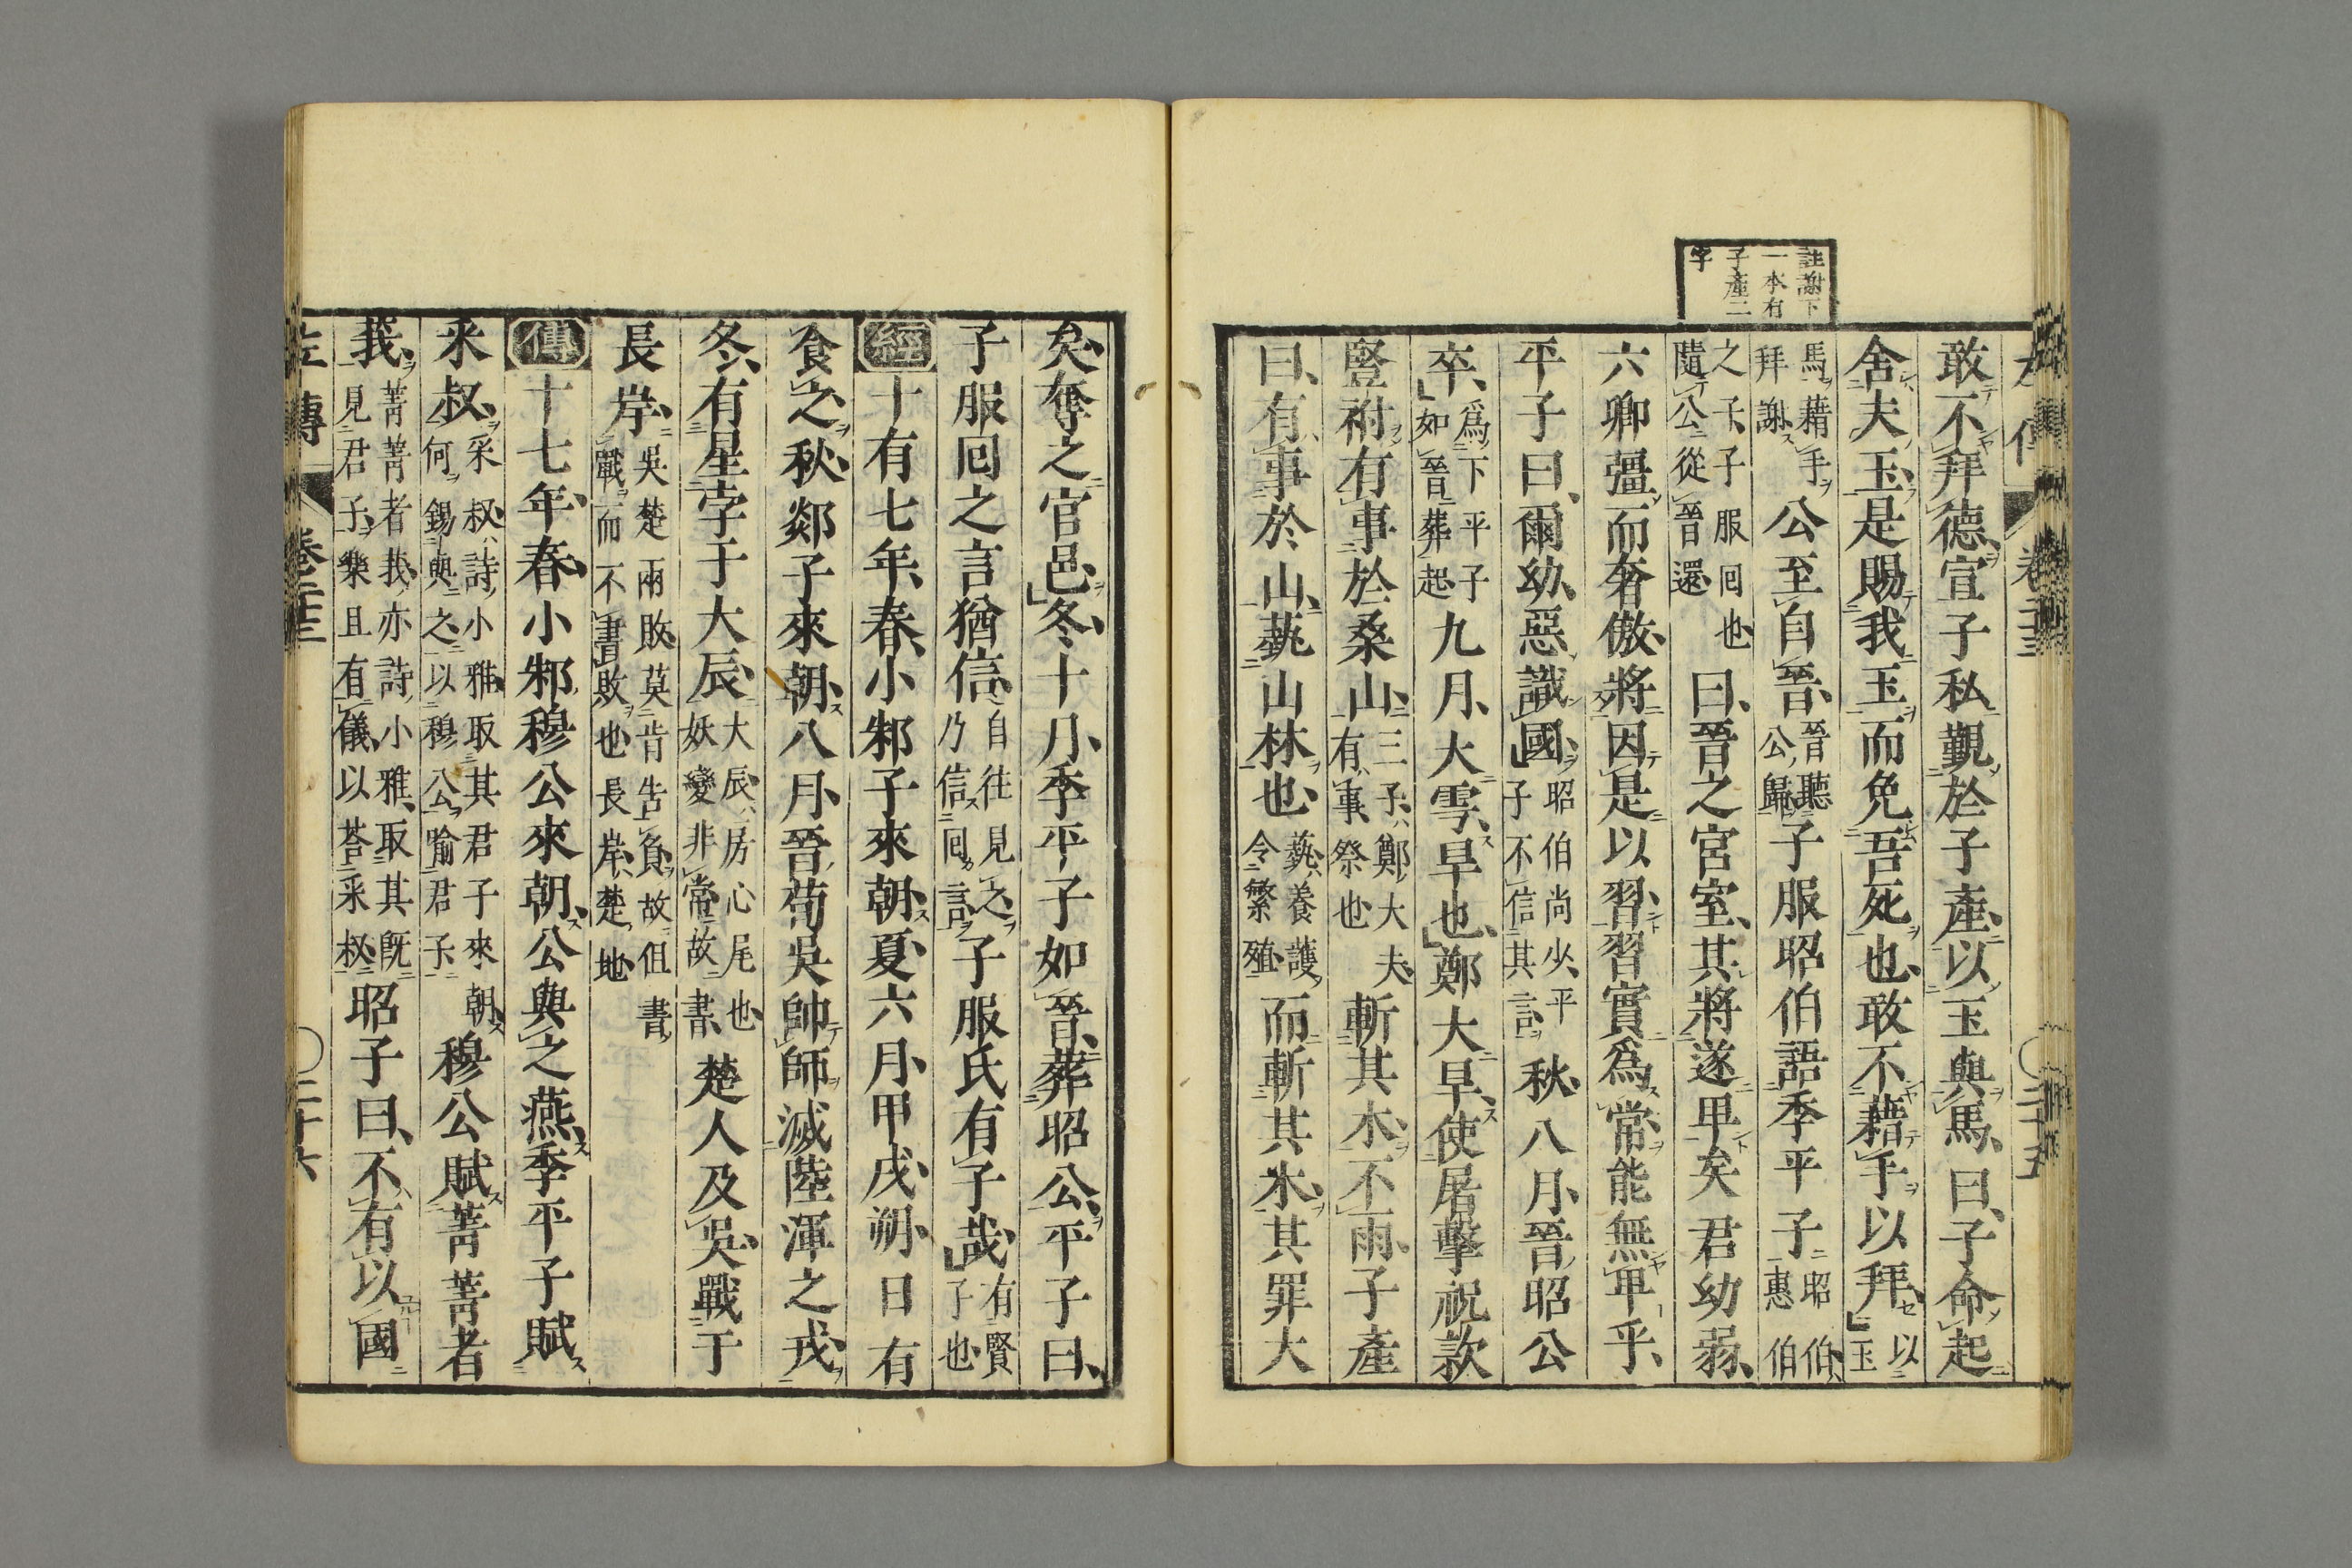 註謝下
一本有
子產二
字
敢不拜德、宣子私覲於子產、以玉與馬、曰、子命起
舍夫玉、是賜我玉而免吾死也、敢不藉手以拜、以玉
馬藉手拜謝公至自晉、晉聽公歸子服昭伯語季平子昭伯、惠伯
之子、子服回也隨公從晉還曰、晉之宮室、其將遂卑矣君幼弱、
六卿彊而奢傲、將因是以習、習實爲常、能無卑乎、
平子曰、爾幼、惡識國、昭伯尚少、平子不信其言秋八月、晉昭公
卒、爲下平子如晉葬起九月、大雩、旱也、鄭大旱、使屠擊祝款
豎柎有事於桑山、三子、鄭大夫、有事、祭也斬其木、不雨、子產
曰、有事於山、蓺山林也、蓺、養護令繁殖而斬其木、其罪大
矣、奪之官邑、冬、十月、季平子如晉、葬昭公、平子曰、
子服回之言猶信、自往見之乃信回言子服氏有子哉、有賢子也
經十有七年、春、小邾子來朝、夏、六月、甲戌、朔、日有
食之、秋、郯子來朝、八月、晉荀吳帥師滅陸渾之戎、
冬、有星孛于大辰、大辰、房心尾也、妖變非常故書、楚人及吳、戰于
長岸、吳楚兩敗、莫肯告負、故但書戰而不書敗也、長岸、楚地、
傳十七年、春、小邾穆公來朝、公與之燕、季平子賦
采叔、采叔、詩小雅、取其君子來朝、何錫與之、以穆公喻君子穆公賦菁菁者
莪、菁菁者莪、亦詩小雅、取其既見君子、樂且有儀、以荅采叔、昭子曰、不有以國
左傳 卷二十三 ○二十六